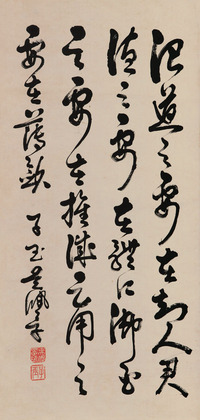 治道之要在知人君
德之要在體仁御臣
之要在推誠足用之
要在薄斂 子玉吳佩孚